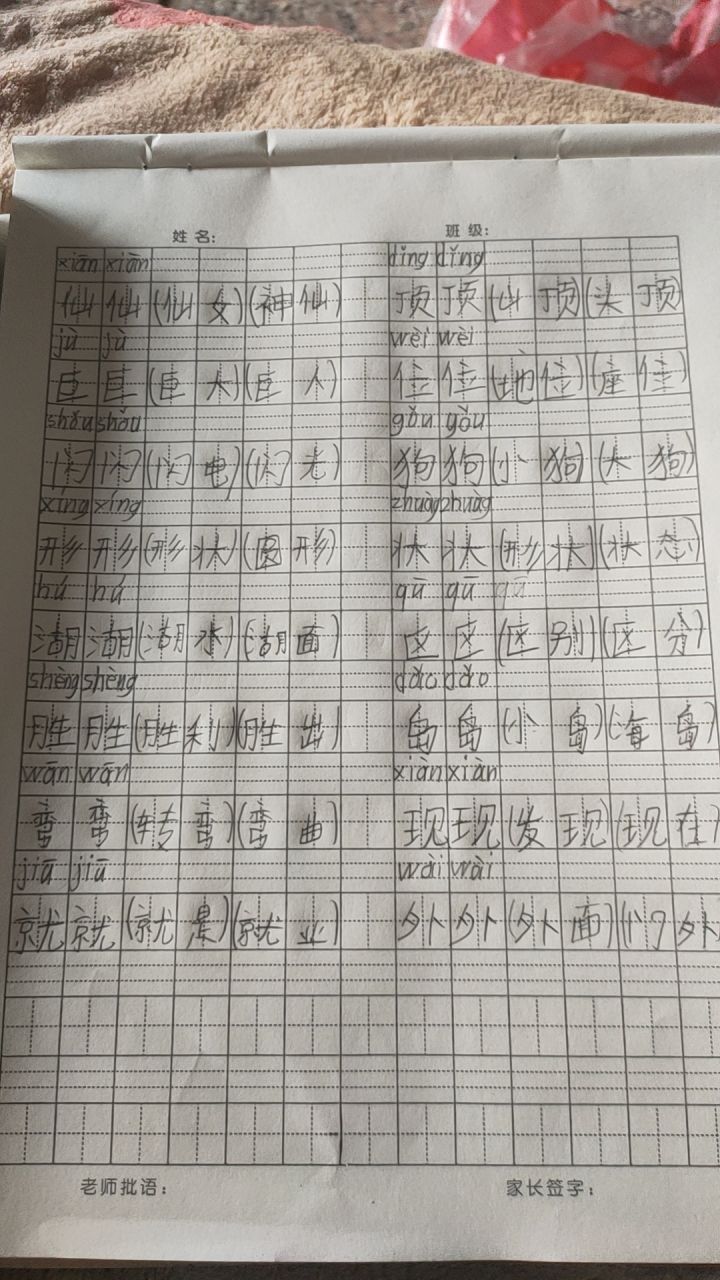 姓名： 班级：
xiān xiān dǐng dǐng
仙 仙 (仙 女) (神 仙) 顶 顶 (山 顶) (头 顶)
jù jù wèi wèi
巨 巨 (巨 大) (巨 人) 位 位 (地 位) (座 位)
shǎu shǎu gǒu gǒu
闪 闪 (闪 电) (闪 光) 狗 狗 (小 狗) (大 狗)
xíng xíng zhuàg zhuàg
形 形 (形 状) (圆 形) 状 状 (形 状) (状 态)
hú hú qū qū qū
湖 湖 (湖 水) (湖 面) 区 区 (区 别) (区 分)
shèng shèng dǎo dǎo
胜 胜 (胜 利) (胜 出) 岛 岛 (小 岛) (海 岛)
wān wān xiàn xiàn
弯 弯 (转 弯) (弯 曲) 现 现 (发 现) (现 在)
jiū jiū wài wài
就 就 (就 是) (就 业) 外 外 (外 面) (门 外
老师批语： 家长签字：